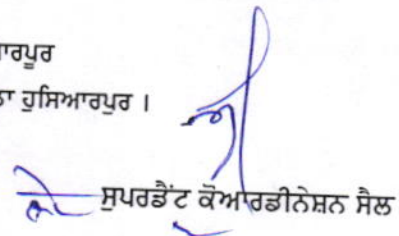 ਾਰਪੂਰ
ਾ ਹੁਸਿਆਰਪੁਰ ।
ਸੁਪਰਡੈਂਟ ਕੋਆਰਡੀਨੇਸ਼ਨ ਸੈਲ